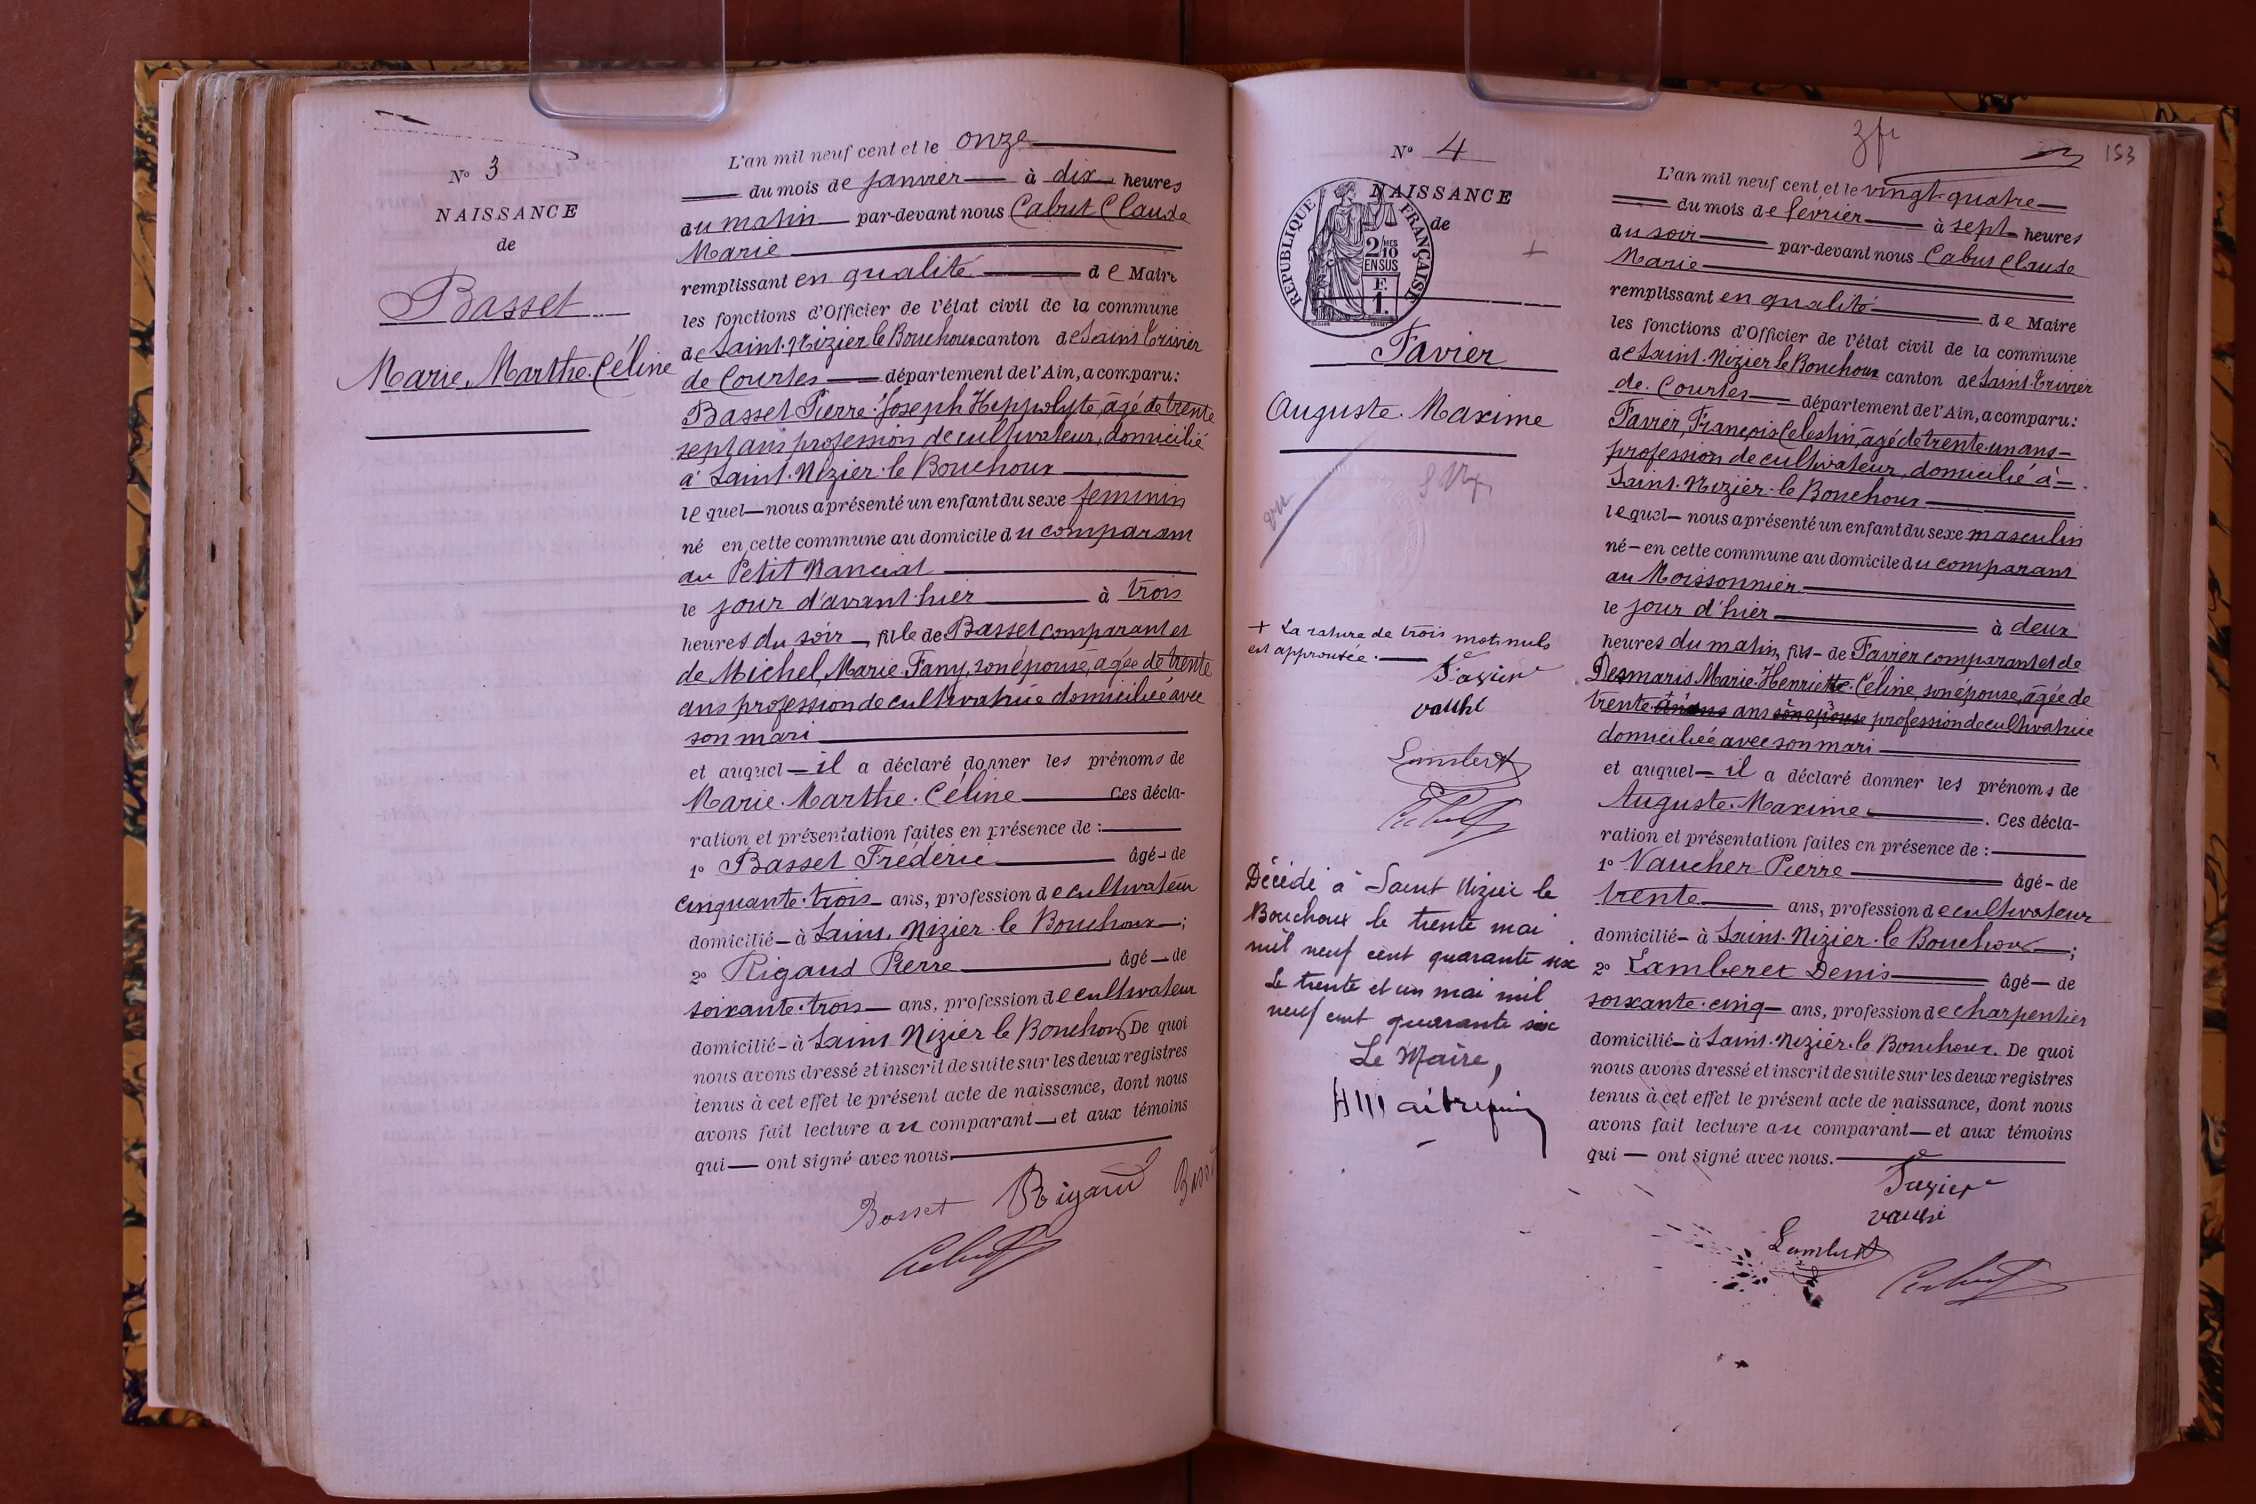 N° 3
NAISSANCE
de
Basset
Marie, Marthe. Céline
L'an mil neuf cent et le onze
du mois de janvier à dix heures
du matin par-devant nous Cabut Claude
Marie
remplissant en qualité de Maire
les fonctions d'Officier de l'état civil de la commune
de Saint. Nizier le Bouchoux canton de Saint Trivier
de Courtes département de l'Ain, a comparu:
Basset Pierre. Joseph Heppolyte, âgé de trente
sept ans profession de cultivateur, domicilié
à Saint. Nizier. le Bouchoux
lequel nous a présenté un enfant du sexe feminin
né en cette commune au domicile du comparant
au Petit
le jour d'avant hier à trois
heures du soir, fille de Basset comparant et
de Michel, Marie. Fany, son épouse, agée de trente
ans profession de cultivatrice domiciliée avec
son mari
et auquel il a déclaré donner les prénoms de
Marie. Marthe. Céline Ces décla-
ration et présentation faites en présence de :
1° Basset Fréderic âgé de
cinquante. trois ans, profession de cultivateur
domicilié à Saint. Nizier. le Bouchoux ;
2° Rigaud Pierre âgé de
soixante. trois ans, profession de cultivateur
domicilié à Saint Nizier le Bouchoux De quoi
nous avons dressé et inscrit de suite sur les deux registres
tenus à cet effet le présent acte de naissance, dont nous
avons fait lecture au comparant et aux témoins
qui ont signé avec nous.
Basset Rigaud
Cabut
3
153
N° 4
NAISSANCE
de
RÉPUBLIQUE FRANÇAISE
2/10 MES
EN SUS
F.
1.
+
Favier
Auguste. Maxime
vu
+ La rature de trois mots nuls
est approuvée.
Favier
Lambert
Cabut
Décédé à Saint Nizier le
Bouchoux le trente mai
mil neuf cent quarante six
Le trente et un mai mil
neuf cent quarante six
Le Maire,
L'an mil neuf cent et le vingt-quatre
du mois de février à sept heures
du soir par-devant nous Cabut Claude
Marie
remplissant en qualité de Maire
les fonctions d'Officier de l'état civil de la commune
de Saint. Nizier le Bouchoux canton de Saint. Trivier
de. Courtes département de l'Ain, a comparu:
Favier, François Celestin, âgé de trente. un ans
profession de cultivateur, domicilié à
Saint. Nizier. le Bouchoux
lequel nous a présenté un enfant du sexe masculin
né en cette commune au domicile du comparant
au Moissonnier
le jour d'hier à deux
heures du matin, fils de Favier comparant et de
Desmaris Marie. Henriette. Céline son épouse, âgée de
trente ans son épouse profession de cultivatrice
domiciliée avec son mari
et auquel il a déclaré donner les prénoms de
Auguste. Maxime. Ces décla-
ration et présentation faites en présence de :
1° Vaucher Pierre âgé de
trente ans, profession de cultivateur
domicilié à Saint. Nizier. le Bouchoux ;
2° Lamberet Denis âgé de
soixante. cinq ans, profession de charpentier
domicilié à Saint. Nizier. le Bouchoux. De quoi
nous avons dressé et inscrit de suite sur les deux registres
tenus à cet effet le présent acte de naissance, dont nous
avons fait lecture au comparant et aux témoins
qui ont signé avec nous.
Favier
Lambert
Cabut